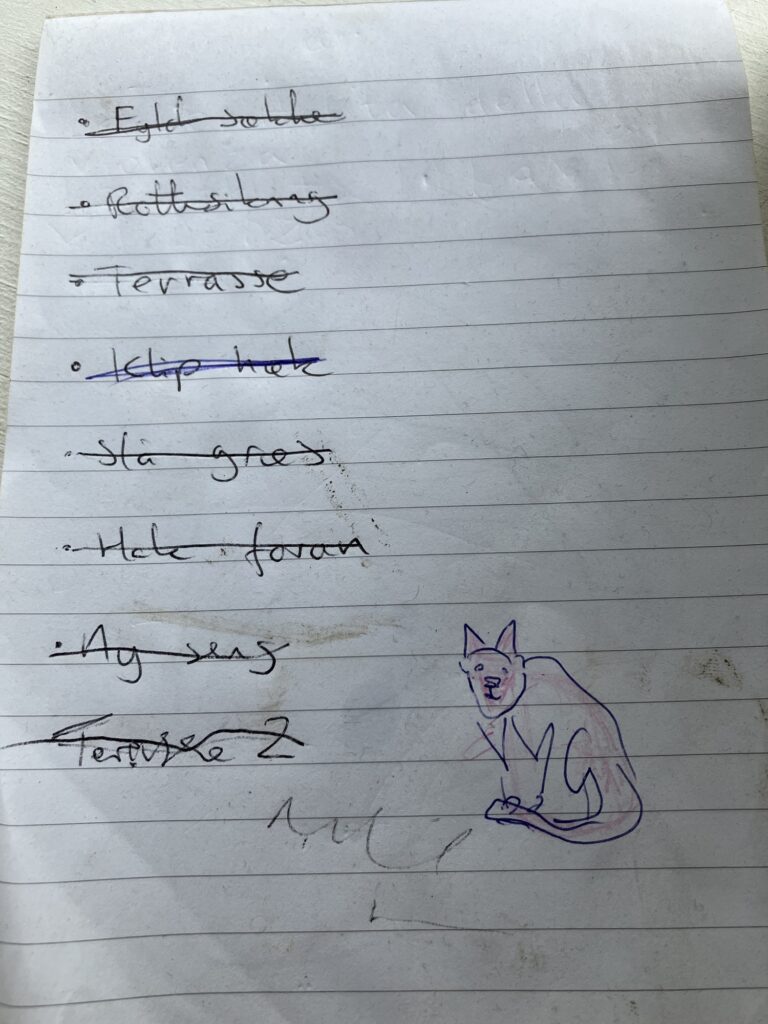 • Fyld sække
• Rottesikring
• Terrasse
• Klip hæk
• Slå græs
• Hæk foran
• Ny seng
Terasse 2